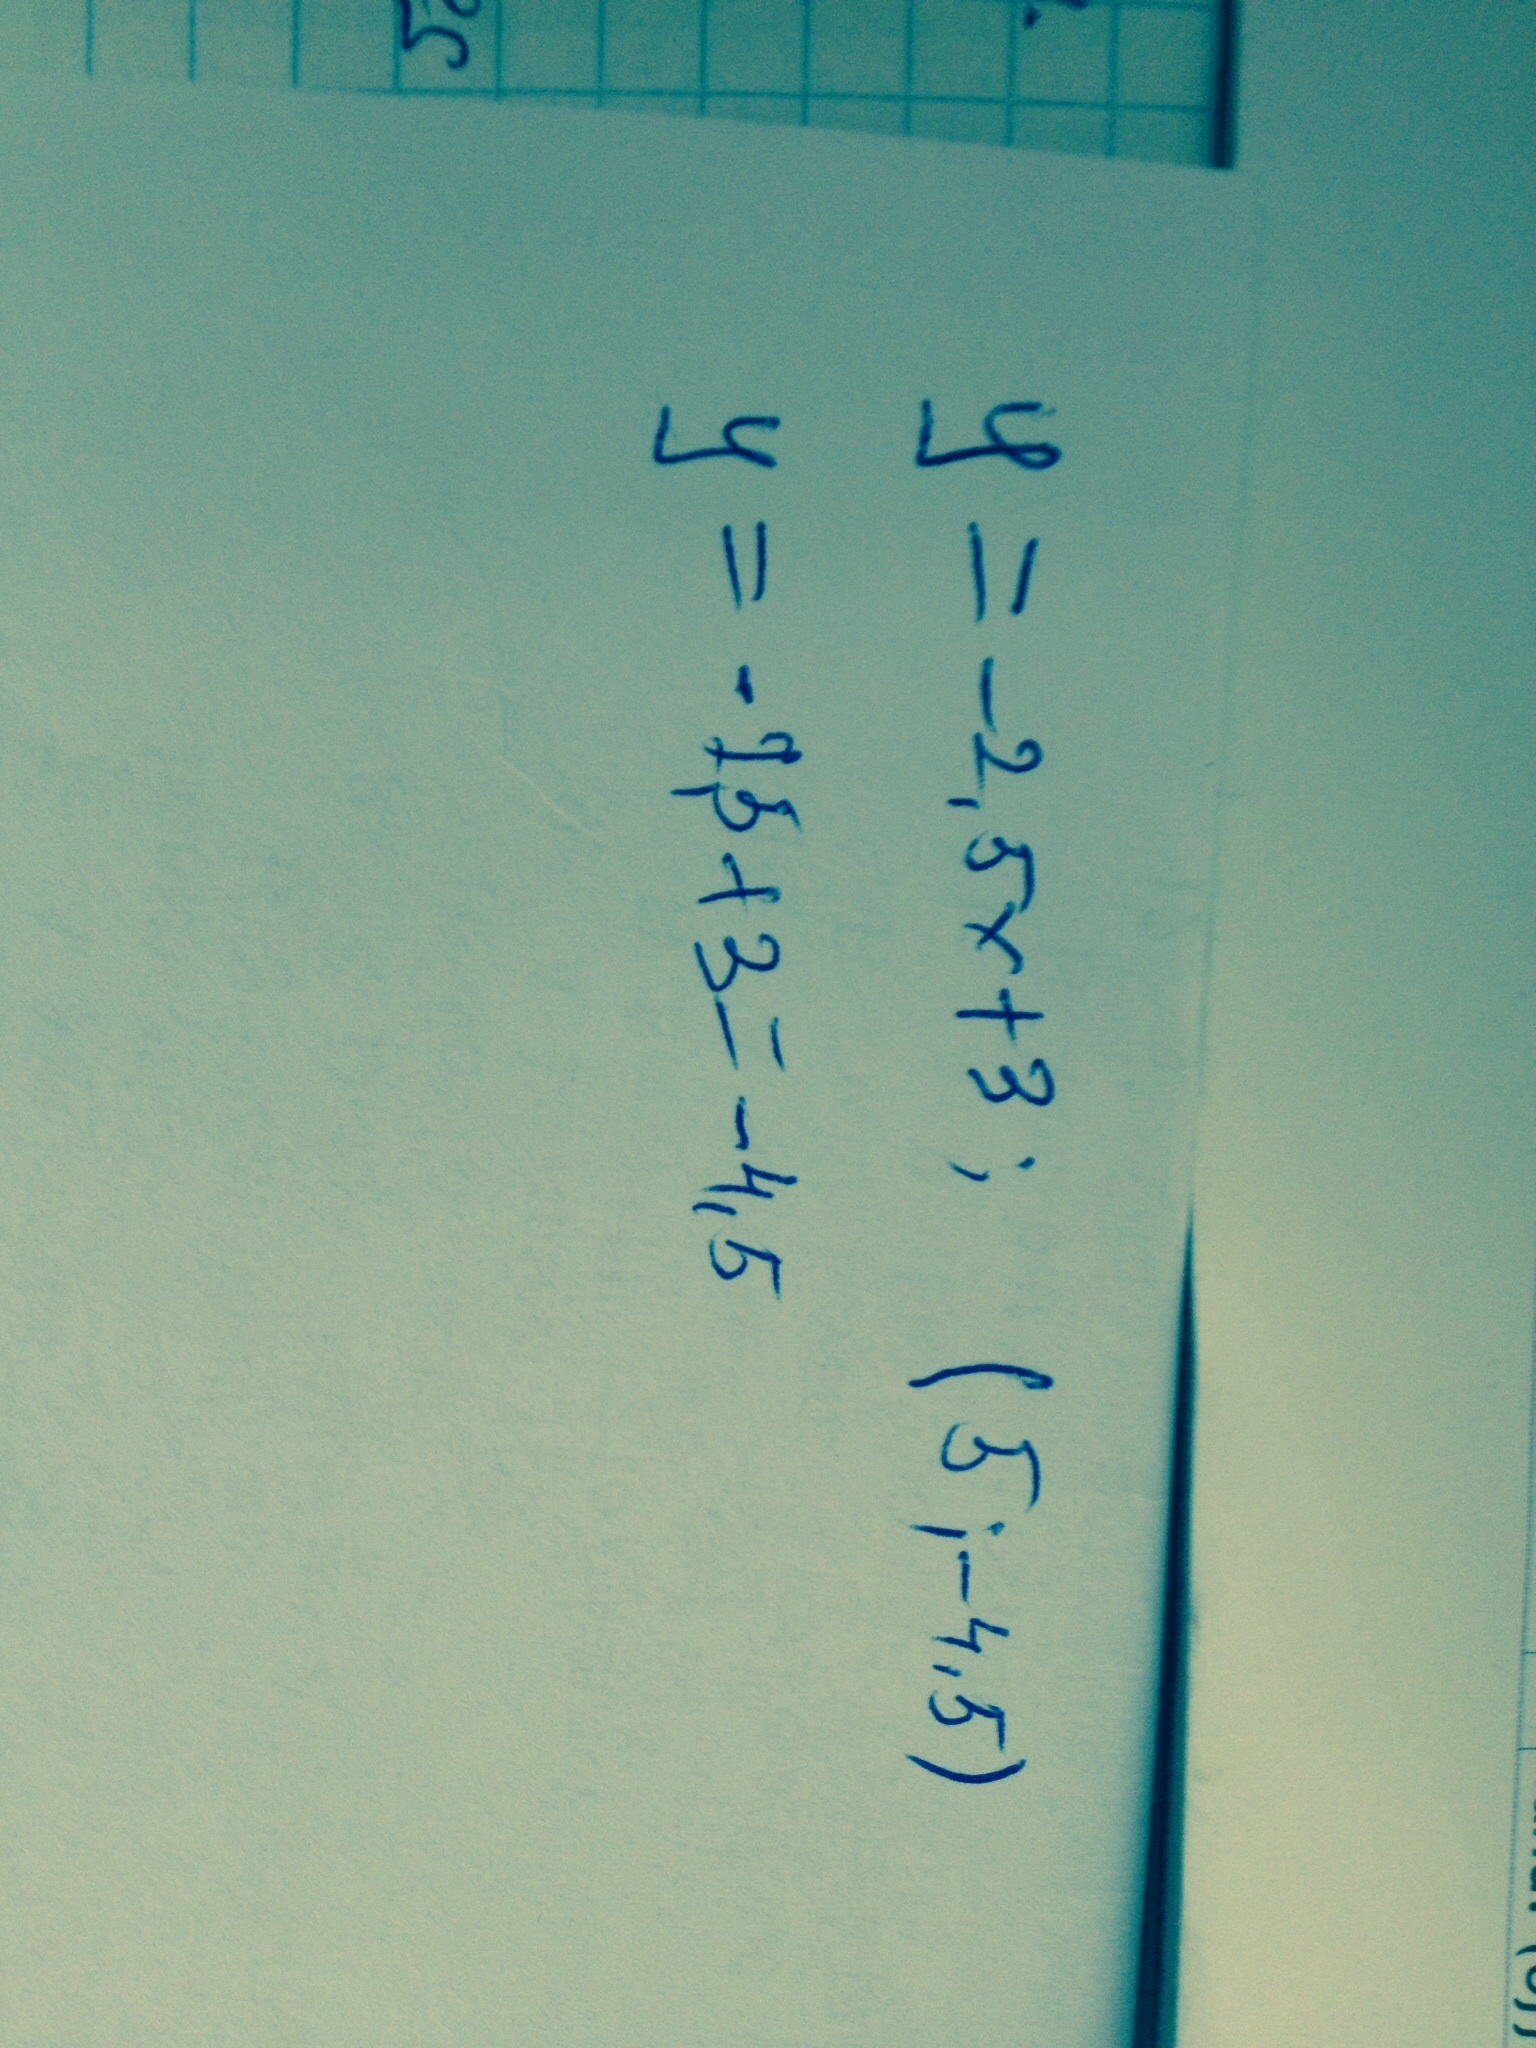 y = -2,5x+3; (5;-4,5)
y = -7,5+3=-4,5